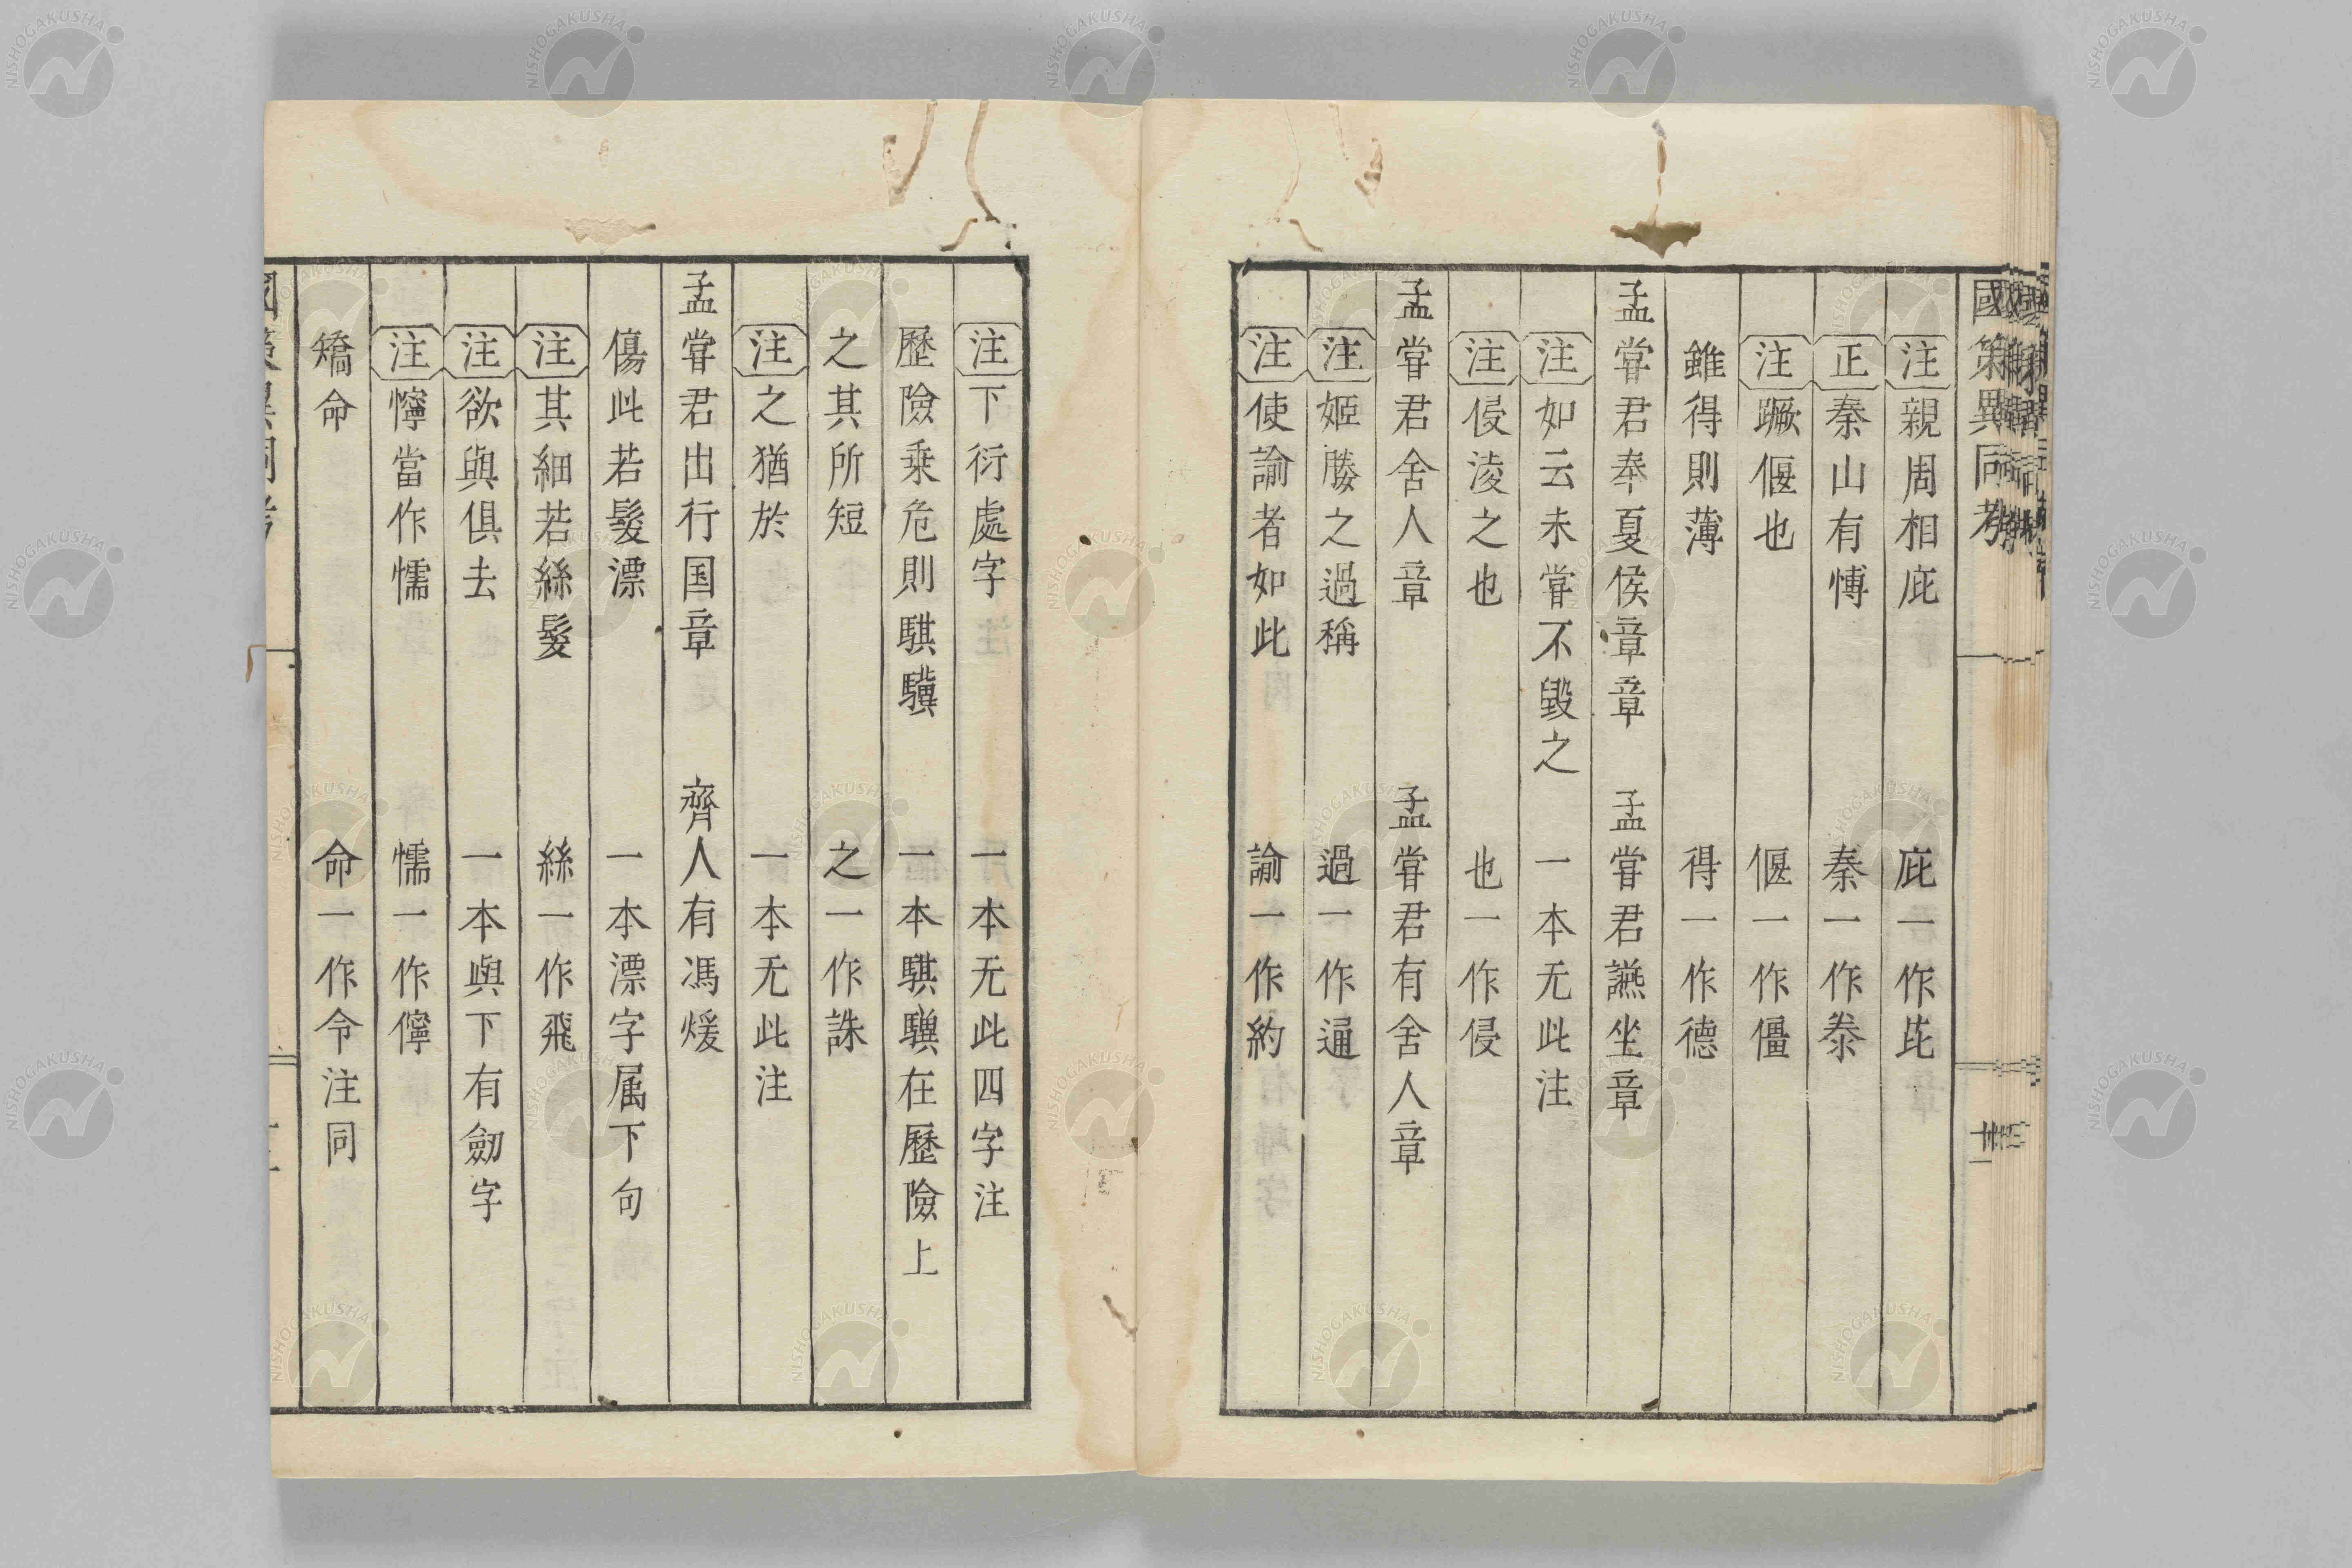 國策異同考
注親周相庇　庇一作芘
正秦山有愽　秦一作泰
注蹶偃也　偃一作僵
雖得則薄　得一作德
孟嘗君奉夏侯章章　孟嘗君讌坐章
注如云未嘗不毀之　一本无此注
注侵淩之也　也一作侵
孟嘗君舍人章　孟嘗君有舍人章
注姬媵之過稱　過一作通
注使諭者如此　諭一作約
注下衍處字　一本无此四字注
歷險乘危則騏驥　一本騏驥在歷險上
之其所短　之一作誅
注之猶於　一本无此注
孟嘗君出行国章　齊人有馮煖
傷此若髮漂　一本漂字属下句
注其細若絲髮　絲一作飛
注欲與俱去　一本與下有劒字
注懧當作懦　懦一作儜
矯命　命一作令注同
NISHOGAKUSHA